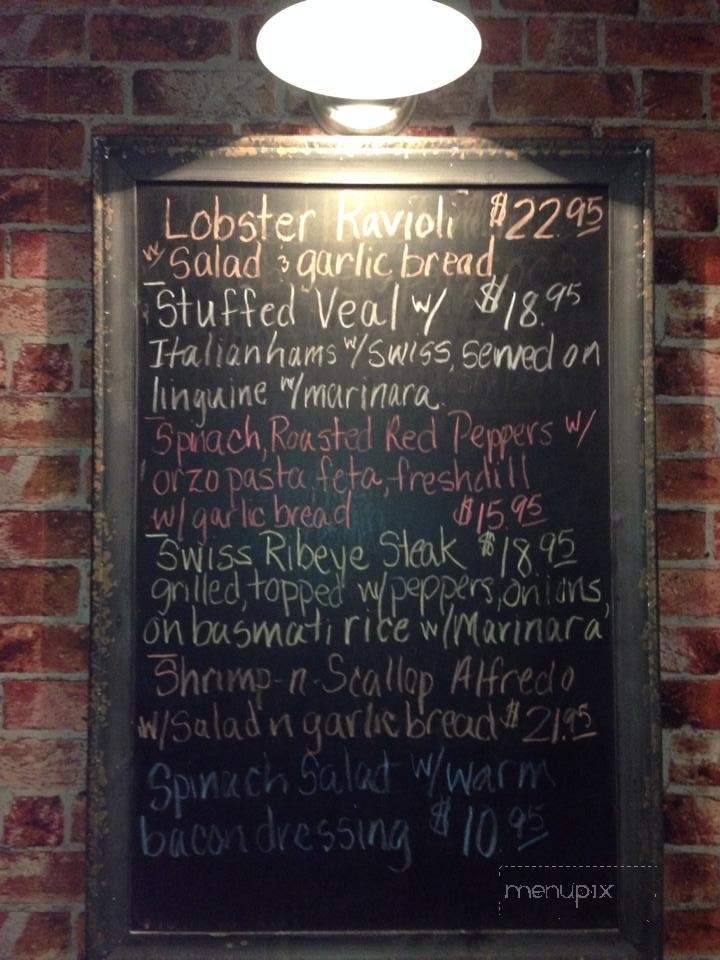 Lobster Ravioli $22.95
w/ Salad & garlic bread
Stuffed Veal w/ $18.95
Italian hams w/ Swiss, served on
linguine w/ marinara.
Spinach, Roasted Red Peppers w/
orzo pasta, feta, fresh dill
w/ garlic bread $15.95
Swiss Ribeye Steak $18.95
grilled, topped w/ peppers, onions,
on basmati rice w/ Marinara
Shrimp-n-Scallop Alfredo
w/ Salad n garlic bread $21.95
Spinach Salad w/ warm
bacon dressing $10.95
menupix